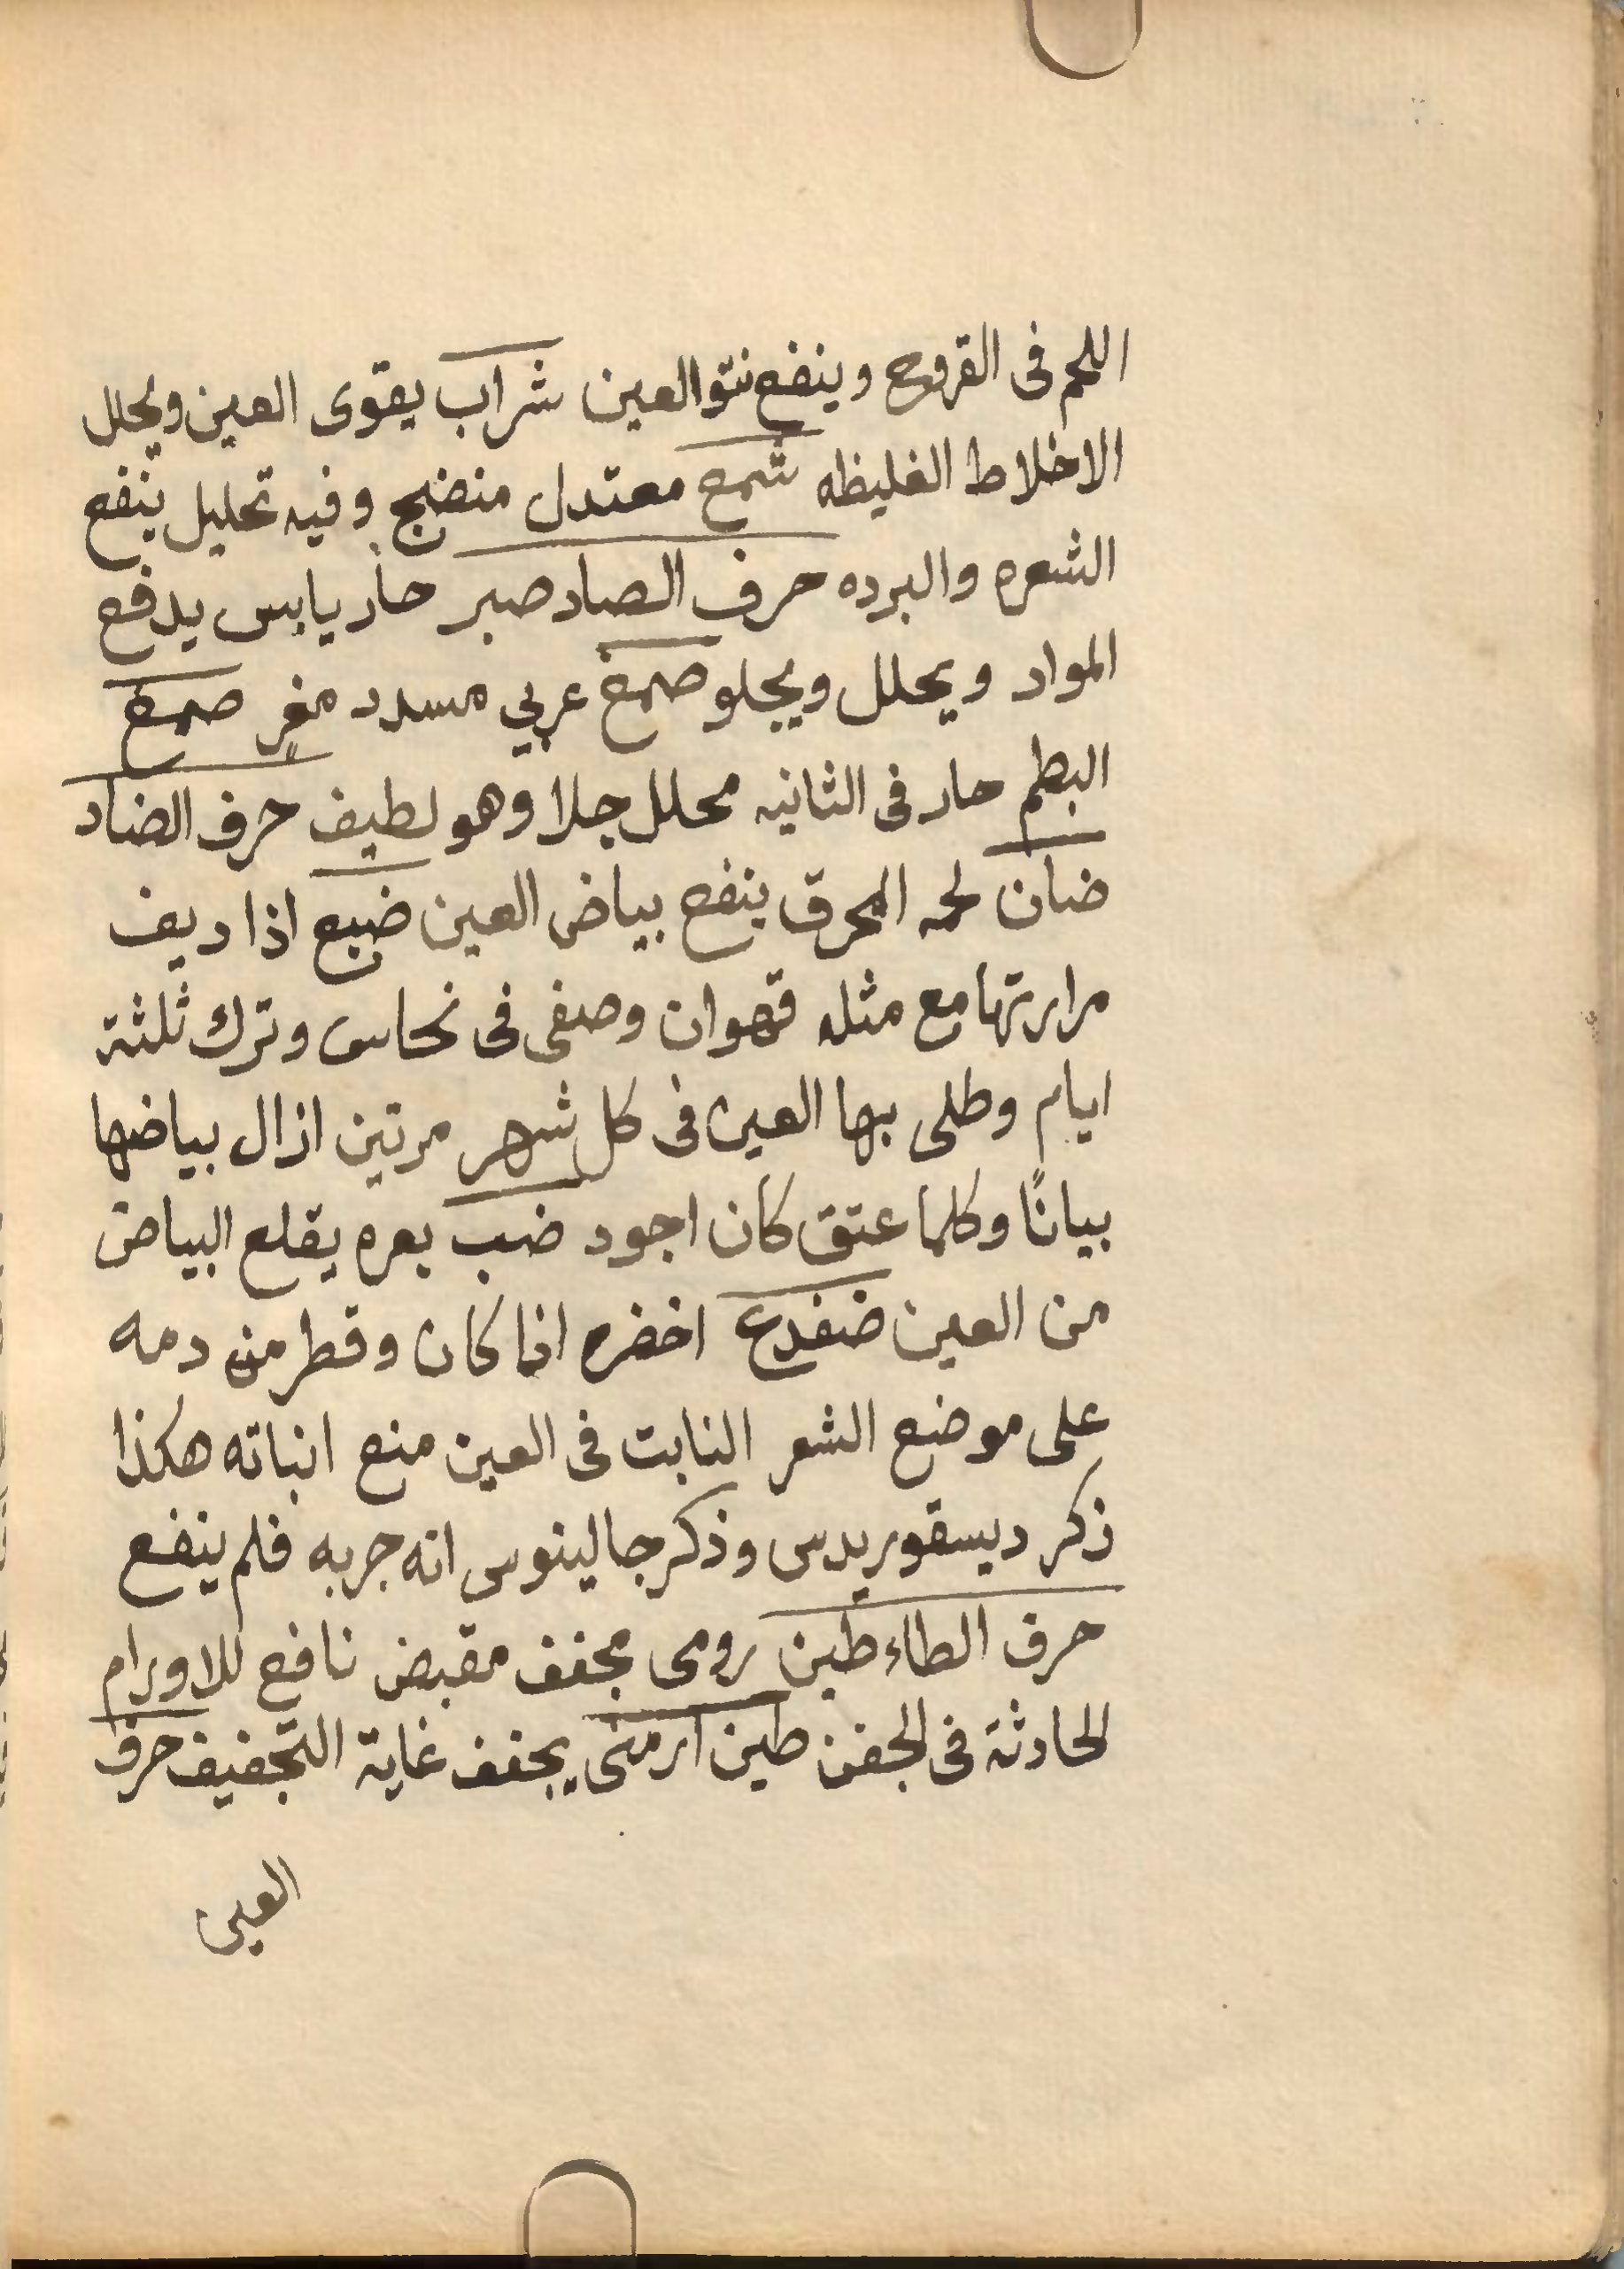 اللحم فى القروح وينفع نتو العين شراب يقوى العين ويحلل
الاخلاط الغليظه شمع معتدل منضج وفيه تحليل ينفع
الشعره والبرده حرف الصاد صبر حار يابس يدفع
المواد ويحلل ويجلو صمغ عربي مسدد مغرٍ صمغ
البطم حار فى الثانيه محلل جلا وهو لطيف حرف الضاد
ضان لحمه المحرق ينفع بياض العين ضبع اذا ديف
مرارتها مع مثله قهوان وصفى فى نحاس وترك ثلثة
ايام وطلى بها العين فى كل شهر مرتين ازال بياضها
بيانًا وكلما عتق كان اجود ضب بعره يقلع البياض
من العين ضفدع اخضره انما كان وقطر من دمه
على موضع الشعر النابت فى العين منع انباته هكذا
ذكر ديسقوريدس وذكر جالينوس انه جربه فلم ينفع
حرف الطاء طين رومى مجفف مقبض نافع للاورام
الحادثة فى الجفن طين ارمنى يجفف غاية التجفيف حرف
العين